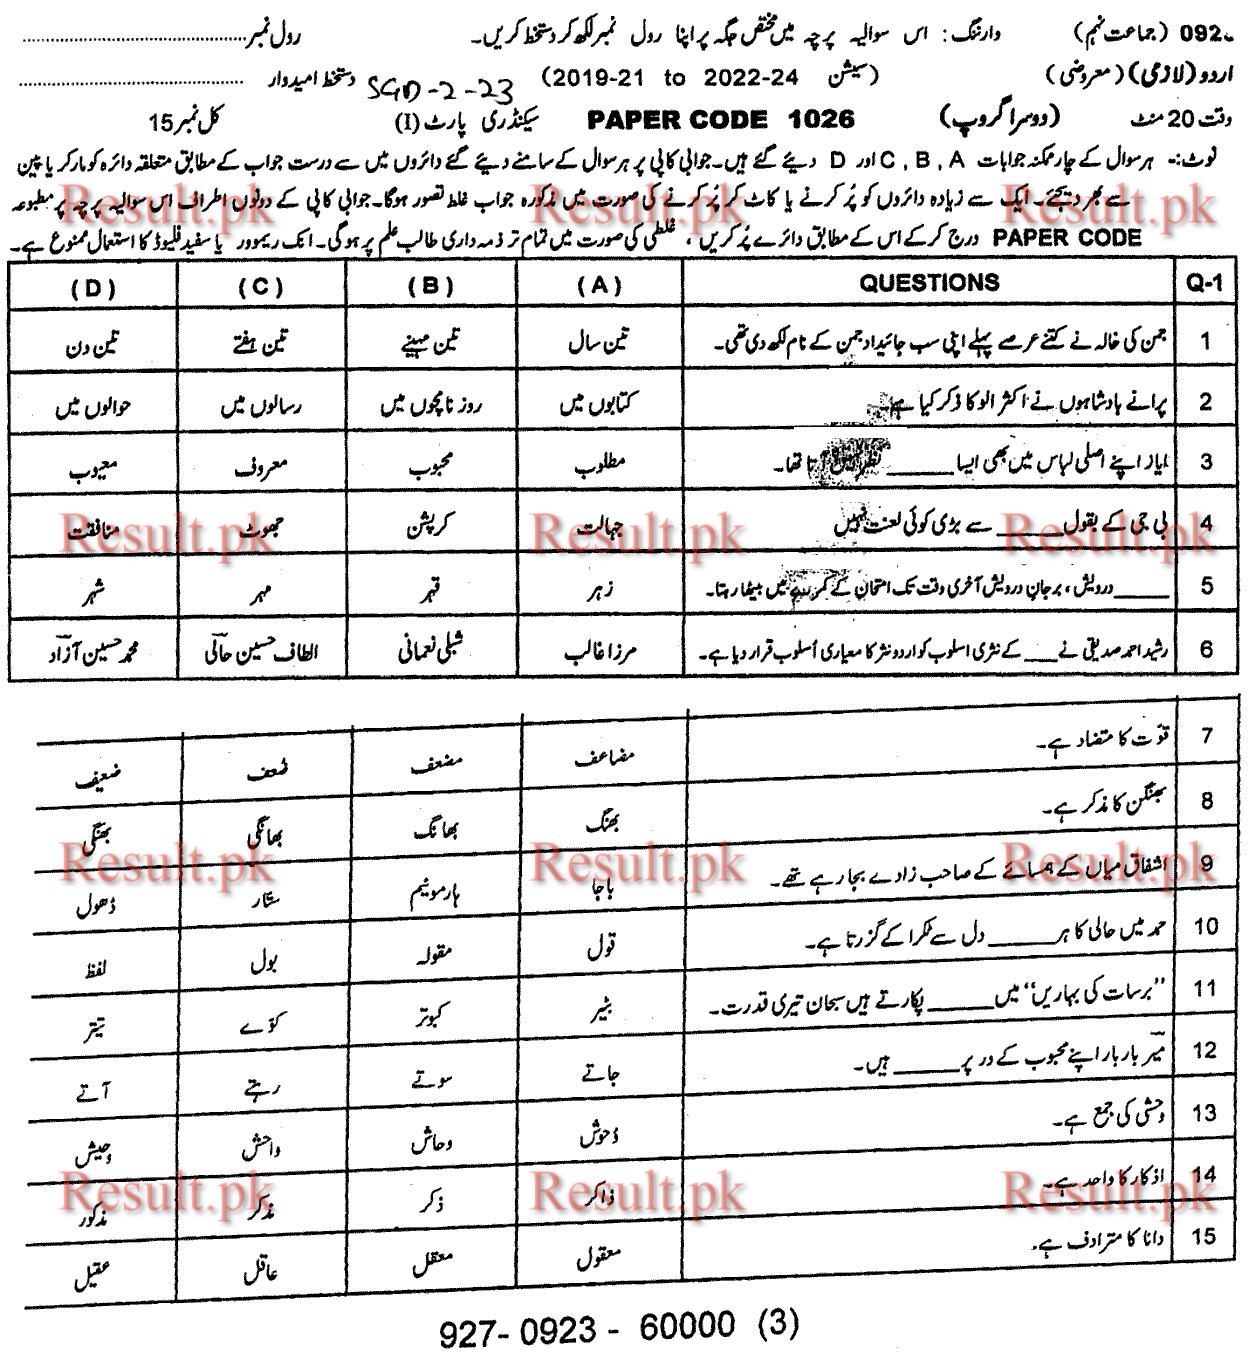 092ء (جماعت نہم) وارننگ: اس سوالیہ پرچہ میں مختص جگہ پر اپنا رول نمبر لکھ کر دستخط کریں۔ رول نمبر
اردو (لازمی) (معروضی) (سیشن 2019-21 to 2022-24) SGD-2-23 دستخط امیدوار
وقت 20 منٹ (دوسرا گروپ) PAPER CODE 1026 سیکنڈری پارٹ (I) کل نمبر 15
نوٹ:۔ ہر سوال کے چار ممکنہ جوابات A , B , C اور D دیئے گئے ہیں۔ جوابی کاپی پر ہر سوال کے سامنے دیئے گئے دائروں میں سے درست جواب کے مطابق متعلقہ دائرہ کو مارکر یا پین
سے بھر دیجئے۔ ایک سے زیادہ دائروں کو پُر کرنے یا کاٹ کر پُر کرنے کی صورت میں مذکورہ جواب غلط تصور ہوگا۔ جوابی کاپی کے دونوں اطراف اس سوالیہ پرچہ پر مطبوعہ
PAPER CODE درج کرکے اس کے مطابق دائرے پُر کریں ، غلطی کی صورت میں تمام تر ذمہ داری طالب علم پر ہوگی۔ انک ریموور یا سفید فلیوڈ کا استعمال ممنوع ہے۔
Q-1 QUESTIONS (A) (B) (C) (D)
1 جمن کی خالہ نے کتنے عرصے پہلے اپنی سب جائیداد جمن کے نام لکھ دی تھی۔ تین سال تین مہینے تین ہفتے تین دن
2 پرانے بادشاہوں نے اکثر الو کا ذکر کیا ہے۔ کتابوں میں روزنامچوں میں رسالوں میں حوالوں میں
3 ایاز اپنے اصلی لباس میں بھی ایسا ______ نظر نہیں آتا تھا۔ مطلوب محبوب معروف معیوب
4 بی جی کے بقول ______ سے بڑی کوئی لعنت نہیں جہالت کرپشن جھوٹ منافقت
5 ______ درویش ، بر جانِ درویش آخری وقت تک امتحان کے کمرے میں بیٹھا رہتا۔ زہر قہر مہر شہر
6 رشید احمد صدیقی نے ___ کے نثری اسلوب کو اردو نثر کا معیاری اُسلوب قرار دیا ہے۔ مرزا غالب شبلی نعمانی الطاف حسین حالیؔ محمد حسین آزادؔ
7 قوّت کا متضاد ہے۔ مضاعف مضعف ضُعف ضعیف
8 بھنگن کا مذکر ہے۔ بھنگ بھانگ بھانگی بھنگی
9 اشفاق میاں کے ہمسائے کے صاحب زادے بجا رہے تھے۔ باجا ہارمونیم ستار ڈھول
10 حمد میں حالی کا ہر ______ دل سے ٹکرا کے گزرتا ہے۔ قول مقولہ بول لفظ
11 ”برسات کی بہاریں“ میں ______ پکارتے ہیں سبحان تیری قدرت۔ بٹیر کبوتر کوّے تیتر
12 میرؔ بار بار اپنے محبوب کے در پر ______ ہیں۔ جاتے سوتے رہتے آتے
13 وحشی کی جمع ہے۔ وُحوش وحاش واحش وحیش
14 اذکار کا واحد ہے۔ ذاکر ذکر مذکر مذکور
15 دانا کا مترادف ہے۔ معقول معقل عاقل عقیل
927- 0923 - 60000 (3)
Result.pk Result.pk Result.pk
Result.pk Result.pk Result.pk
Result.pk Result.pk Result.pk
Result.pk Result.pk Result.pk